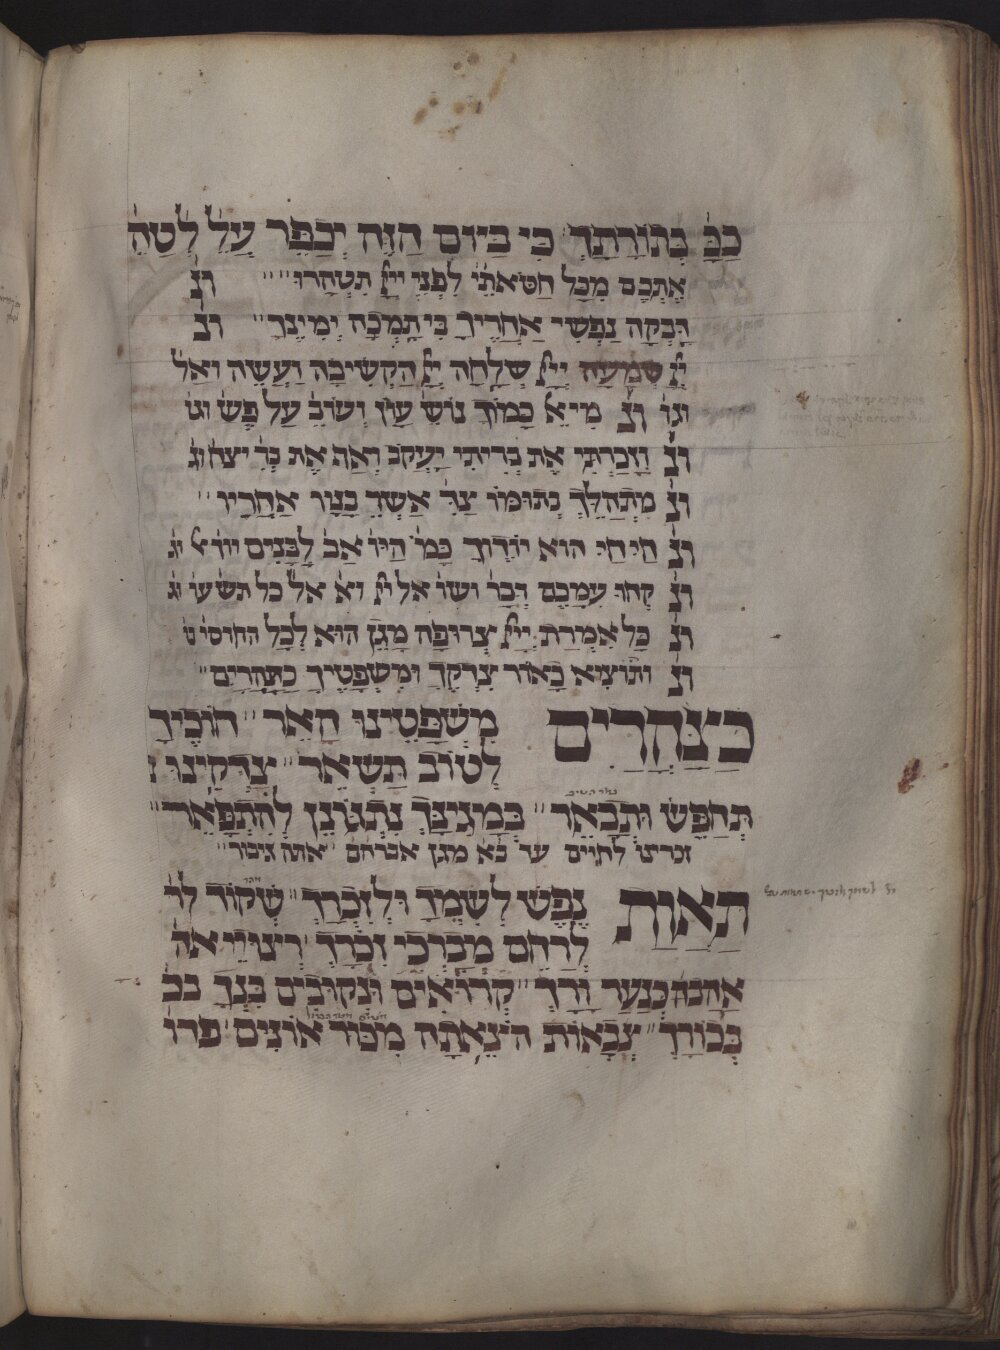 ככּ׳ בְּתוֹרָתָךְ כִּי בַיּוֹם הַזֶּה יְכַפֵּר עֲלֵ׳ לְטַהֵ׳
אֶתְכֶם מִכֹּל חַטֹּאתֵי׳ לִפְנֵי ייָ תִּטְהָרוּ ונ׳
דָּבְקָה נַפְשִׁי אַחֲרֶיךָ בִּי תָּמְכָה יְמִינֶךָ ונ׳
ייָ שְׁמָעָה ייָ סְלָחָה ייָ הַקְשִׁיבָה וַעֲשֵׂה וְאַל
וגו׳ ונ׳ מִי אֵ׳ כָּמוֹךָ נוֹשֵׂ׳ עָוֹן וְעוֹבֵ׳ עַל פֶּשַׁ׳ וגו׳
ונ׳ וְזָכַרְתִּי אֶת בְּרִיתִי יַעֲקֹב וְאַף אֶת בְּרִ׳ יִצְחָ׳ וג׳
ונ׳ מִתְהַלֵּךְ בְּתוּמּוֹ צַדִּ׳ אַשְׁרֵי בָנָיו אַחֲרָיו
ונ׳ חַי חַי הוּא יוֹדֶךָ כָּמֹ׳ הַיּוֹ׳ אָב לְבָנִים יודי׳ א׳ וג׳
ונ׳ קְחוּ עִמָּכֶם דְּבָרִ׳ ושו׳ אל ייָ א׳ אל׳ כל תש׳ עו׳ וג׳
ונ׳ כָּל אִמְרַת ייָ צְרוּפָה מָגֵן הוּא לְכָל הַחוֹסִי׳ בו׳
ונ׳ וְהוֹצִיא כָאוֹר צִדְקֶךָ וּמִשְׁפָּטֶיךָ כַּצָּהֳרָיִם
כַּצָּהֳרַיִם מִשְׁפָּטֵינוּ הָאֵר חוֹבֵיךָ
לְטוֹב תַּשְׁאֵר צִדְקֵינוּ
תְּחַפֵּשׂ וּתְבָאֵר בְּמָגִינָּךְ נִתְגּוֹנֵן לְהִתְפָּאֵר
זכרינו לחיים עד בא מגן אברהם אתה גיבור
תַּאֲוַת נֶפֶשׁ לְשִׁמְךָ וּלְזִכְרָךְ שְׁקוֹד לְ
לְרַחֵם מִבִּרְכֵי זִכְרָךְ
כְנַעַר וָרָךְ קְרוּאִים וּנְקוּבִים בָּנֶךָ בכ
בְּכוֹרָךְ צְבָאוֹת הוֹצֵאתָה מִכּוּר אוֹנִים פרו